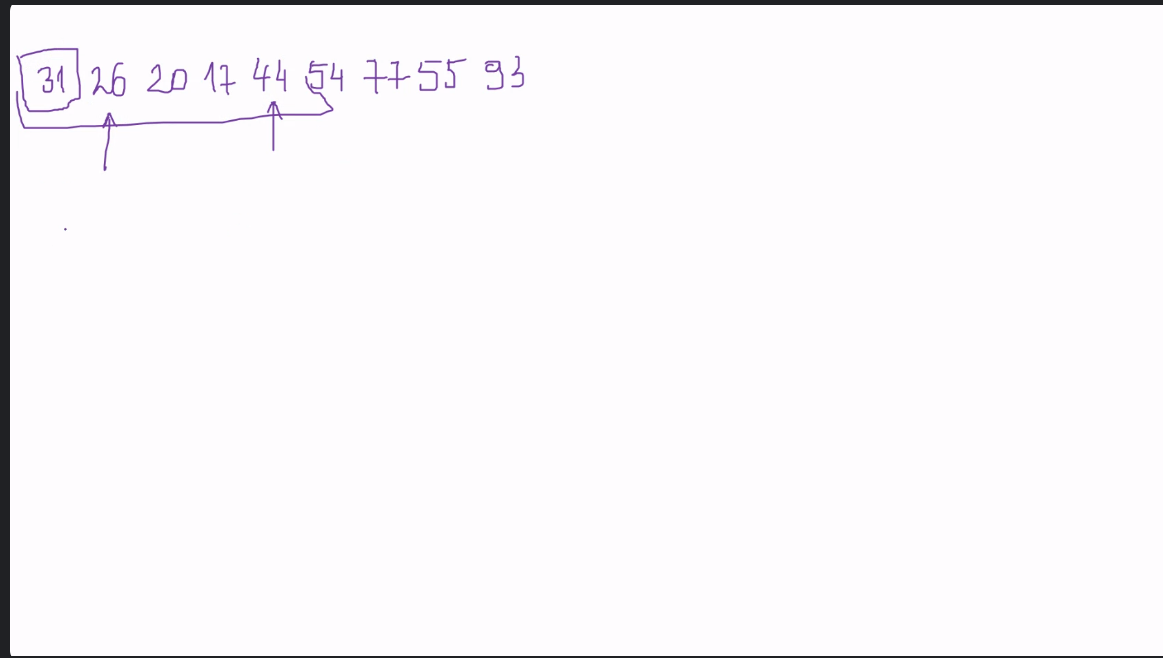 31 26 20 17 44 54 77 55 93